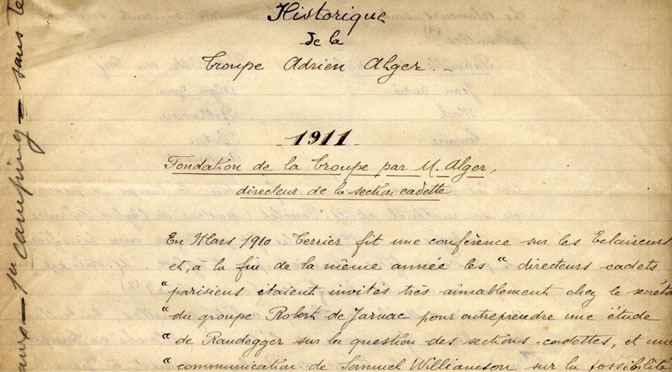 Historique
de la
Troupe Adrien Alger
1911
Fondation de la Troupe par M. Alger,
directeur de la section cadette
En Mars 1910 Terrier fit une conférence sur les Eclaireurs
et, à la fin de la même année les " directeurs cadets
" parisiens étaient invités très aimablement chez le secréta
" du groupe Robert de Jarnac pour entreprendre une étude
" de Randegger sur la question des sections cadettes, et une
" communication de Samuel Williamson sur la possibilité
camping — sans te